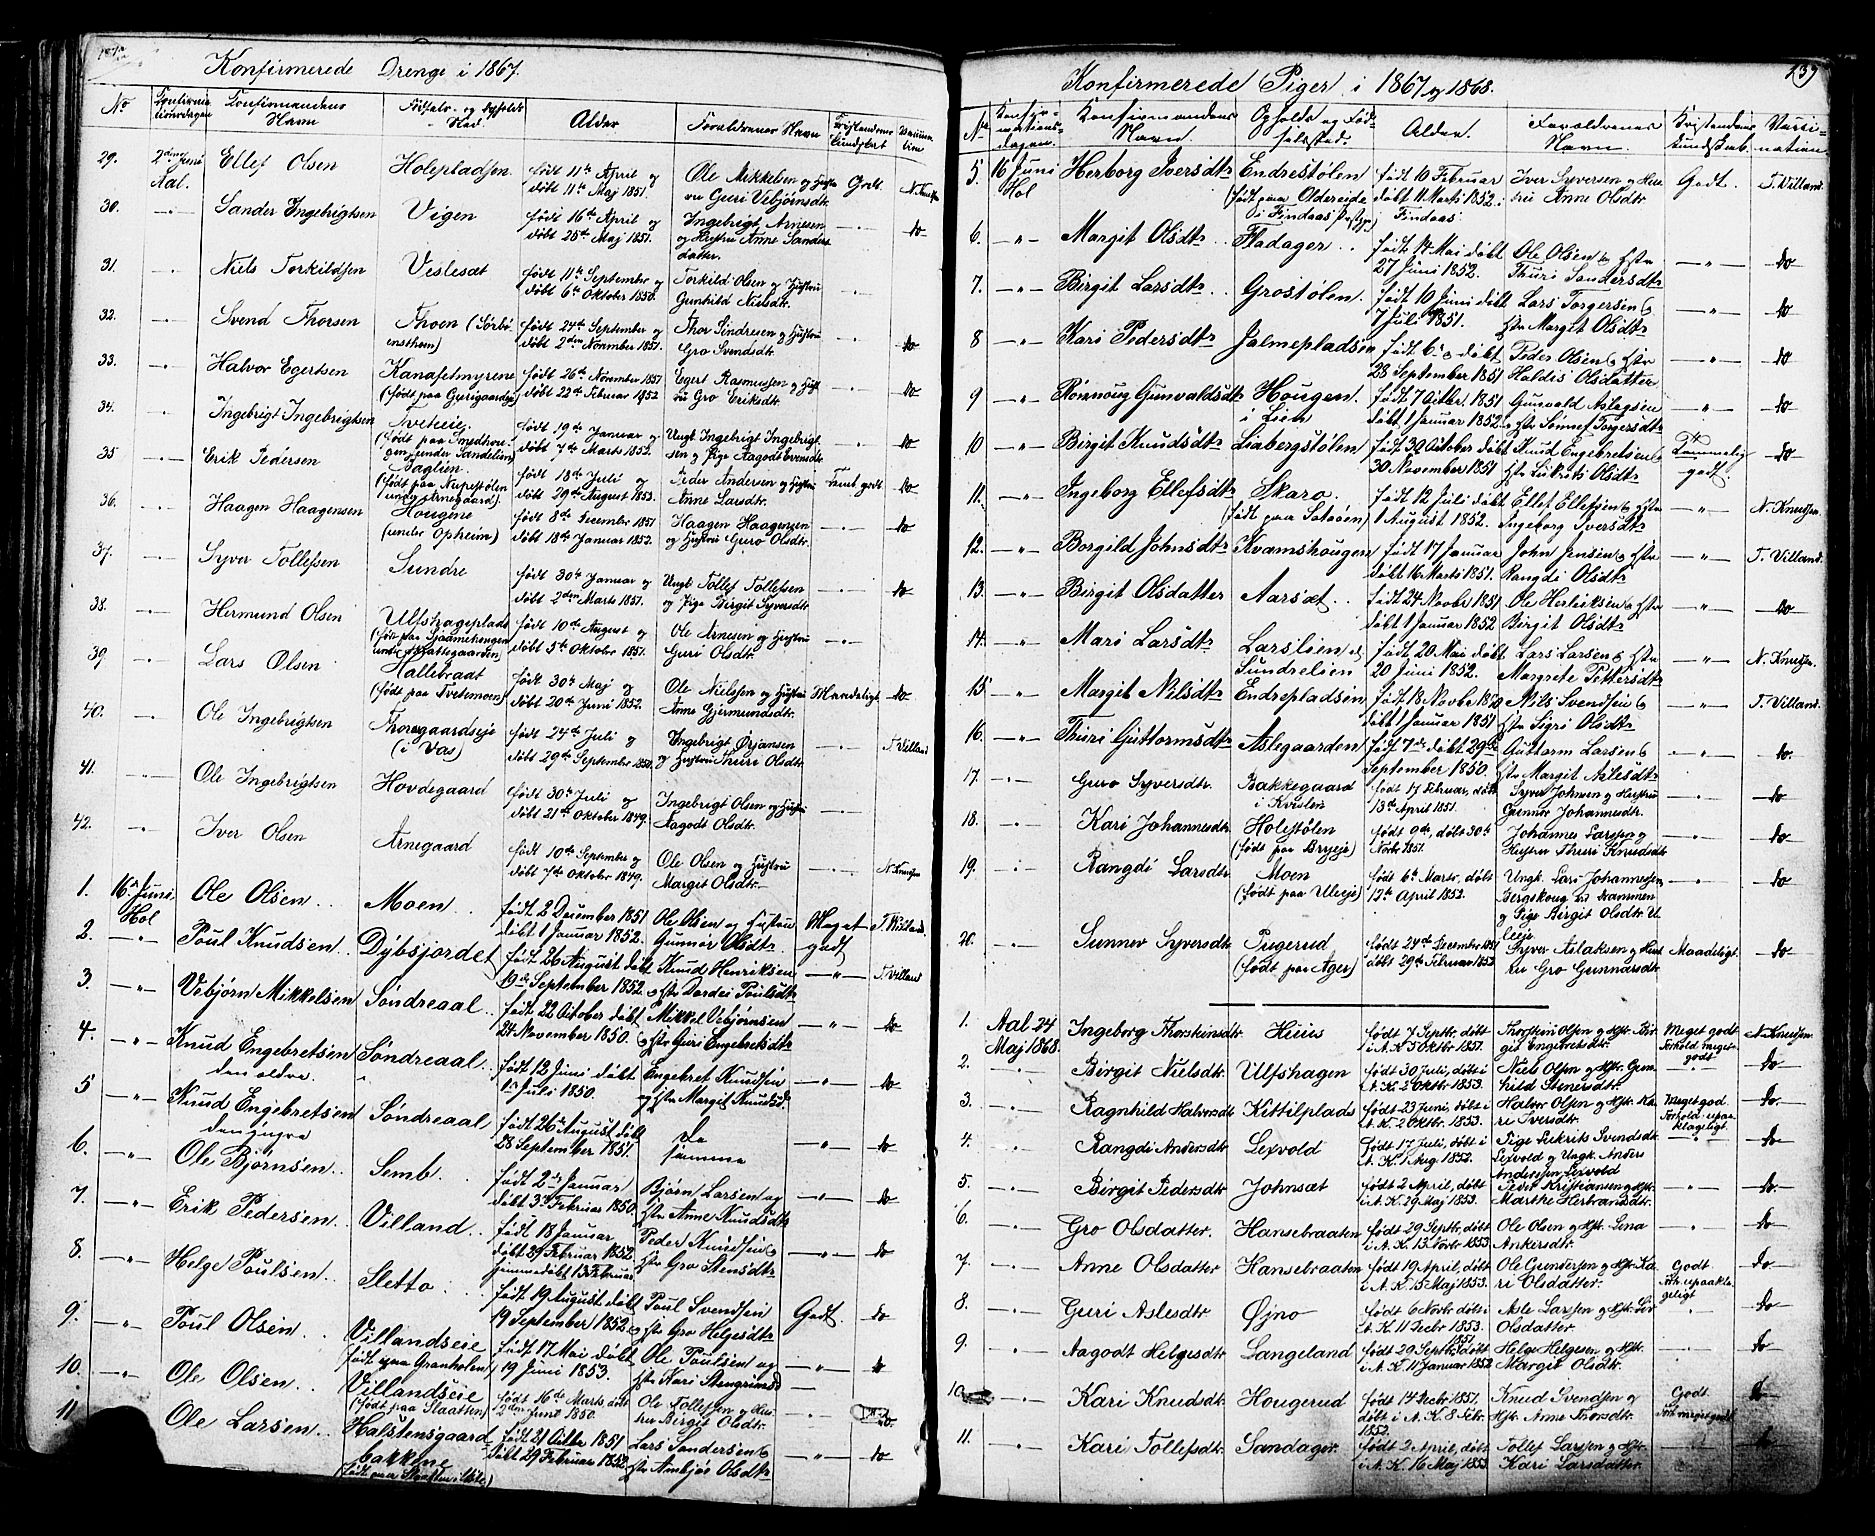 Konfirmerede Drenge i 1867.
No
Konfirmandens Navn
Alder
Forældrenes Navn
29. Ellef Olsen Holepladsen født 11te April og døbt 11te Maj 1851. Ole Mikkelsen og Hustru Guri Vebjørnsdtr. Godt
Aal.
30. Sander Ingebrigtsen Vigen født 16te April og døbt 25te Maj 1851. Ingebrigt Arnesen og Hustru Anne Sandersdatter do
31. Niels Torkildsen Veslesæt født 11te September og døbt 6te Oktober 1850. Torkild Olsen og Hustru Gunhild Nielsdtr.
32. Svend Thorsen Thoen født 24te September og døbt 2den November 1851. Thor Sindresen og Hustru Gro Svendsdtr. do
33. Halvor Egertsen Kanasetmyrene (født paa Gurigaarden) født 26te November 1851 døbt 22de Februar 1852 Egert Rasmussen og Hustru Gro Eriksdtr. do
34. Ingebrigt Ingebrigtsen Tveheie født 19de Januar og døbt 7de Marts 1852. Ungk. Ingebrigt Ingebrigtsen og Pige Aagodt Evensdtr do
35. Erik Pedersen Baglien. født 18de Juli og døbt 29de August 1853. Peder Andersen og Hustru Anne Larsdtr. do
36. Haagen Haagensen Hougene (under Opheim) født 8de December 1851 døbt 18de Januar 1852. Haagen Haagensen og Hustru Guro Olsdtr. do
37. Syver Tollefsen Sundre født 30te Januar og døbt 2den Marts 1851. Ungk Tollef Tollefsen og Pige Birgit Syversdtr do
38. Hermund Olsen Ulfshageplads født 10de August og døbt 5te Oktober 1851. Ole Arnesen og Hustru Guri Olsdtr.
39. Lars Olsen Hallebraat (født paa Tvetemoen) født 30te Maj og døbt 20de Juni 1852. Ole Nielsen og Hustru Anne Gjermundsdtr. Maadeligt do
40. Ole Ingebrigtsen Thoresgaardseje (i Vas) født 24de Juli og døbt 29de September 1850. Ingebrigt Ørjansen og Hustru Thuri Olsdtr. T. Villand
41. Ole Ingebrigtsen Hovdegaard født 30te Juli og døbt 21de Oktober 1849. Ingebrigt Olsen og Hustru Aagodt Olsdtr.
42. Iver Olsen Arnegaard født 10de September og døbt 7de Oktober 1849. Ole Olsen og Hustru Margit Olsdtr. N. Knudsen
1. 16. Juni Hol Ole Olsen Moen født 2 December 1851 døbt 1 Januar 1852. Ole Olsen og Hustru Gunnor Olsdtr Meget godt T. Villand.
2. Poul Knudsen Dybsjordet født 26 August døbt 19 September 1852. Knud Henriksen og Hstr Dordei Poulsdtr T. Villand
3. Vebjørn Mikkelsen Søndreaal født 22 October døbt 24 November 1850. Mikkel Vebjørnsen og Hstr Guri Engebretsdtr do
4. Knud Engebretsen den ældre. Søndreaal født 12 Juni døbt 1 Juli 1850. Engebret Knudsen og Hstr Margit Knudsd. do
5 Knud Engebretsen den yngre Søndreaal født 26 August døbt 28 September 1851. De samme do
6. Ole Bjørnsen Semb. født 2 Januar døbt 3 Februar 1850. Bjørn Larsen og Hstr Anne Knudsdtr do
7. Erik Pedersen Villand født 13 Januar døbt 29 Februar 1852 Peder Knudsen og Hstr Gro Stensdtr do
8. Helge Poulsen Sletto født 19 August døbt 19 September 1852 Poul Svendsen og Hstr Gro Helgesdtr Godt. do
9. Poul Olsen Villandseie født 17 Mai døbt 19 Juni 1853. Ole Poulsen og Hstr Kari Stengrimsd do
10. Ole Olsen Villandseie (født paa Slaatten) født 16de Marts døbt 2den Juni 1850. Ole Tollefsen og Hustru Birgit Olsdtr. do.
11 Ole Larsen Halstensgaardbakkene født 21 Octbr 1851 døbt 29 Februar 1852. Lars Sandersen og Hstr Ambjør Olsdtr do
Konfirmerede Piger i 1867 og 1868.
139
No Konfirmationsdagen. Konfirmandens Navn. Opholds og Fødselssted. Alder. Forældrenes Navn. Kristendomskundskab. Vaccination.
5. 16 Juni Hol Herborg Iversdtr Endrestølen født 10 Februar døbt 11 Marts 1852 i Findaas Iver Syversen og Hustru Anne Olsdtr Godt. T. Villand.
6. Margit Olsdtr Fladager født 14 Mai døbt 27 Juni 1852. Ole Olsen og Hstr Thuri Sandersdtr do
7. Birgit Larsdtr Grostølen. født 10 Juni døbt 7 Juli 1851. Lars Torgersen og Hstr Margit Olsdtr do
8 Kari Pedersdtr Jalmepladsen født 6 døbt 28 September 1851 Peder Olsen og Hstr Haldis Olsdatter do
9 Rønnoug Gunvaldsdtr Hougen i Lien født 7 Octbr. 1851 døbt 1 Januar 1852. Gunvald Aslagsen og Hstr Sønnef Torgersdtr do
10 Birgit Knudsdtr Liabergstølen født 30 October døbt 30 November 1851 Knud Engebretsen og Hstr Lukrits Olsdtr Temmelig godt. do
11. Ingeborg Ellefsdtr Skaro. født 12 Juli døbt 1 August 1852. Ellef Ellefsen og Hstr Ingeborg Iversdtr N. Knudsen.
12. Borgild Johnsdtr Kvamshougen født 17 Januar døbt 16 Marts 1851. John Jensen og Hstr Rangdi Olsdtr T. Villand.
13. Birgit Olsdatter Aarsæt. født 24 Novbr 1851 døbt 1 Januar 1852 Ole Herleiksen og Hstr Birgit Olsdtr do
14. Mari Larsdtr Larslien Sundrelien født 20 Mai døbt 20 Juni 1852. Lars Larsen og Hstr Margrete Pettersdtr N. Knudsen.
15 Margit Nilsdtr Endrepladsen født 18 Novbr 1850 døbt 1 Januar 1851 Nils Svendsen og Hstr Sigri Olsdtr T. Villand.
16. Thuri Guttormsdtr Aslegaarden født 7 døbt 29 September 1850. Guttorm Larsen og Hstr Margit Aslesdtr do
17. Guro Syversdtr. Bakkegaard i Kvislen født 17 Februar, døbt 13de April 1851. Syver Johnsen og Hustru Gunnor Johannesdtr. do
18. Kari Johannesdtr Holestølen (født paa Bryeje) født 9de, døbt 30te Novbr 1851. Johannes Larssen og Hustru Thuri Knudsdtr. do
19. Rangdi Larsdtr Moen (født paa Ulleeje) født 6te Marts, døbt 12te April 1852. Ungk. Lars Johannessen Bergskoug ved Drammen og Pige Birgit Olsdtr Ulleeje do
20. Sunnev Syversdtr Pugerud (født paa Ager) født 24de December 1851 døbt 29de Februar 1852 Syver Aslaksen og Hustru Gro Gunnarsdtr. Maadeligt. do
1. Aal 24 Maj 1868. Ingeborg Thorsteinsdtr. Huus født 7 Septbr, døbt i A.K. 5 Oktbr 1851. Thorstein Olsen og Hstr. Birgit Engebretsdtr. Meget godt Forhold meget godt N. Knudsen.
2. Birgit Nielsdtr Ulfshagen født 30 Juli, døbt i A.K. 2 Oktbr 1853. Niels Olsen og Hstr. Gunhild Stenersdtr. do
3. Ragnhild Halvorsdtr Kittilplads født 23 Juni, døbt i A.K. 2 Oktbr. 1853. Halvor Olsen og Hstr. Kari Iversdtr. Meget god Forhold upaaklageligt do
4. Rangdi Andersdtr Lexvold født 17 Juli, døbt i A.K. 1 Aug. 1852. Pige Lukrits Svendsdtr Lexvold og Ungk. Anders Andersen Lexvold do
5. Birgit Pedersdtr Johnsæt født 2 April, døbt i A.K. 29 Maj 1853. Peder Kristiansen og Hstr Marthe Herbrandsdtr. do
6. Gro Olsdatter. Hansebraaten født 29 Septbr, døbt i A.K. 13 Novbr 1853 Ole Olsen og Hstr. Lina Ankersdtr. do
7. Anne Olsdatter Hansebraaten født 19 April, døbt i A.K. 15 Maj 1853. Ole Gundersen og Hstr. Kari Olsdatter. Godt Forh. upaaklageligt do
8. Guri Aslesdtr. Øjno født 6 Novbr. døbt i A.K. 11 Decbr 1853. Asle Larsen og Hstr. Olsdatter. do
9. Aagodt Helgesdtr. Langeland født 29 Septbr 1851, døbt i A.K. 11 Januar 1852 Helge Helgesen og Hstr. Margit Olsdtr. do
10. Kari Knudsdtr Hougerud født 14 Decbr 1851. døbt i A.K. 8 Febr. 1852. Knud Svendsen og Hstr. Anne Thorsdtr. Godt Forh. meget godt do
11. Kari Tollefsdtr. Sandager født 2 April, døbt i A.K. 16 Maj 1853. Tollef Larsen og Hstr. Kari Larsdatter. do